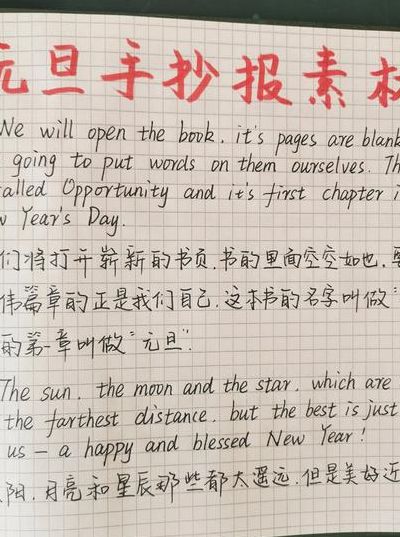 元旦手抄报素材
We will open the book, it's pages are blank
going to put words on them ourselves. Th
alled Opportunity and it's first chapter i
w Year's Day.
们将打开崭新的书页,书的里面空空如也,
伟篇章的正是我们自己,这本书的名字叫做“
的第一章叫做“元旦”.
The sun, the moon and the star, which are
the farthest distance, but the best is just
us — a happy and blessed New Year!
阳,月亮和星辰那些都太遥远,但是美好近